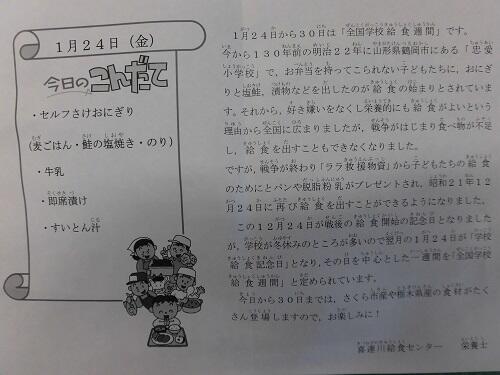 1月24日（金）
今日のこんだて
・セルフさけおにぎり
（麦ごはん・鮭の塩焼き・のり）
・牛乳
・即席漬け
・すいとん汁
1月24日から30日は「全国学校給食週間」です。
今から130年前の明治22年に山形県鶴岡市にある「忠愛
小学校」で、お弁当を持ってこられない子どもたちに、おにぎ
りと塩鮭、漬物などを出したのが給食の始まりとされていま
す。それから、好き嫌いをなくし栄養的にも給食がよいという
理由から全国に広まりましたが、戦争がはじまり食べ物が不足
し、給食を出すこともできなくなりました。
ですが、戦争が終わり「ララ救援物資」から子どもたちの給食
のためにとパンや脱脂粉乳がプレゼントされ、昭和21年12
月24日に再び給食を出すことができるようになりました。
この12月24日が戦後の給食開始の記念日となりました
が、学校が冬休みのところが多いので翌月の1月24日が「学校
給食記念日」となり、その日を中心とした一週間を「全国学校
給食週間」と定められています。
今日から30日までは、さくら市産や栃木県産の食材がたく
さん登場しますので、お楽しみに！
喜連川給食センター　栄養士